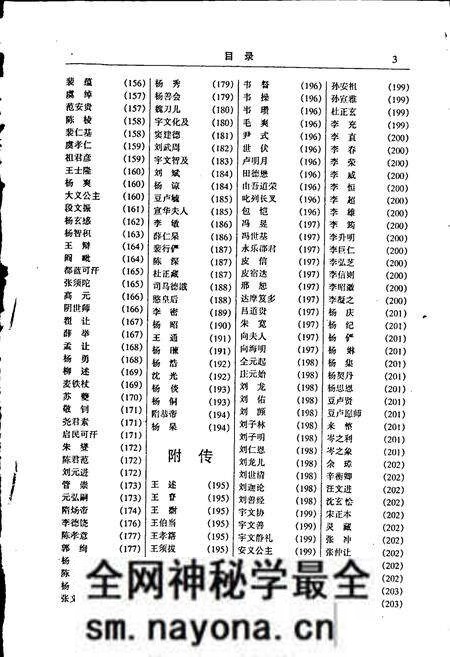 目 录
3
裴 蕴 (156)
虞 绰 (157)
范安贵 (157)
陈 棱 (158)
裴仁基 (158)
虞孝仁 (159)
祖君彦 (159)
王士隆 (160)
杨 爽 (160)
大义公主 (160)
段文振 (161)
杨玄感 (162)
杨智积 (163)
王 辩 (164)
阎 毗 (164)
都蓝可汗 (165)
张须陀 (165)
高 元 (166)
阴世师 (166)
翟 让 (167)
薛 举 (167)
孟 让 (168)
杨 勇 (168)
柳 述 (169)
麦铁杖 (169)
苏 夔 (170)
敬 钊 (171)
尧君素 (171)
启民可汗 (171)
朱 燮 (172)
陈君范 (172)
刘元进 (172)
管 崇 (173)
元弘嗣 (173)
隋炀帝 (174)
李德饶 (176)
陈孝意 (177)
郭 绚 (177)
杨
陈
杨
张
杨 秀 (179)
杨善会 (179)
魏刀儿 (180)
宇文化及 (180)
窦建德 (181)
刘武周 (182)
宇文智及 (183)
刘 斌 (184)
杨 谅 (184)
豆卢毓 (185)
宣华夫人 (185)
李 敏 (186)
薛仁杲 (186)
裴行俨 (187)
陈 深 (187)
杜正藏 (187)
司马德戡 (188)
愍皇后 (188)
李 密 (189)
杨 昭 (190)
王 通 (191)
杨 暕 (191)
杨 浩 (192)
沈 光 (192)
杨 倓 (193)
杨 侗 (193)
隋恭帝 (194)
杨 杲 (194)
附 传
王 述 (195)
王 昚 (195)
王 胄 (195)
王伯当 (195)
王孝籍 (195)
王须拔 (195)
韦 督 (196)
韦 操 (196)
韦 瓒 (196)
毛 爽 (196)
尹 式 (196)
世 伏 (196)
卢明月 (196)
田德懋 (196)
由吾道荣 (196)
叱列长叉 (196)
包 恺 (196)
冯 昱 (197)
冯世基 (197)
永乐郡君 (197)
皮 信 (197)
皮宿达 (197)
邢 恕 (197)
达摩笈多 (197)
吕道贵 (197)
朱 宽 (197)
向夫人 (197)
向海明 (197)
仝元起 (198)
庄元始 (198)
刘 龙 (198)
刘 佑 (198)
刘 颢 (198)
刘子林 (198)
刘子明 (198)
刘仁恩 (198)
刘龙儿 (198)
刘世清 (198)
刘迦论 (198)
刘善经 (198)
宇文协 (199)
宇文善 (199)
宇文静礼 (199)
安义公主 (199)
孙安祖 (199)
孙宣雅 (199)
杜正玄 (199)
李 充 (199)
李 直 (200)
李 春 (200)
李 荣 (200)
李 威 (200)
李 恒 (200)
李 超 (200)
李 雄 (200)
李 筠 (200)
李升明 (200)
李巨仁 (200)
李弘芝 (200)
李信则 (200)
李昭徽 (200)
李凝之 (200)
杨 庆 (201)
杨 纪 (201)
杨 俨 (201)
杨 琳 (201)
杨 集 (201)
杨契丹 (201)
杨思恩 (201)
豆卢贤 (201)
豆卢愿师 (201)
来 整 (201)
岑之利 (201)
岑之象 (201)
余 璆 (202)
辛衡卿 (202)
汪文进 (202)
沈玄㤭 (202)
宋正本 (202)
灵 藏 (202)
张 冲 (202)
张仲让 (202)
(202)
(202)
(203)
(203)
全网神秘学最全
sm.nayona.cn